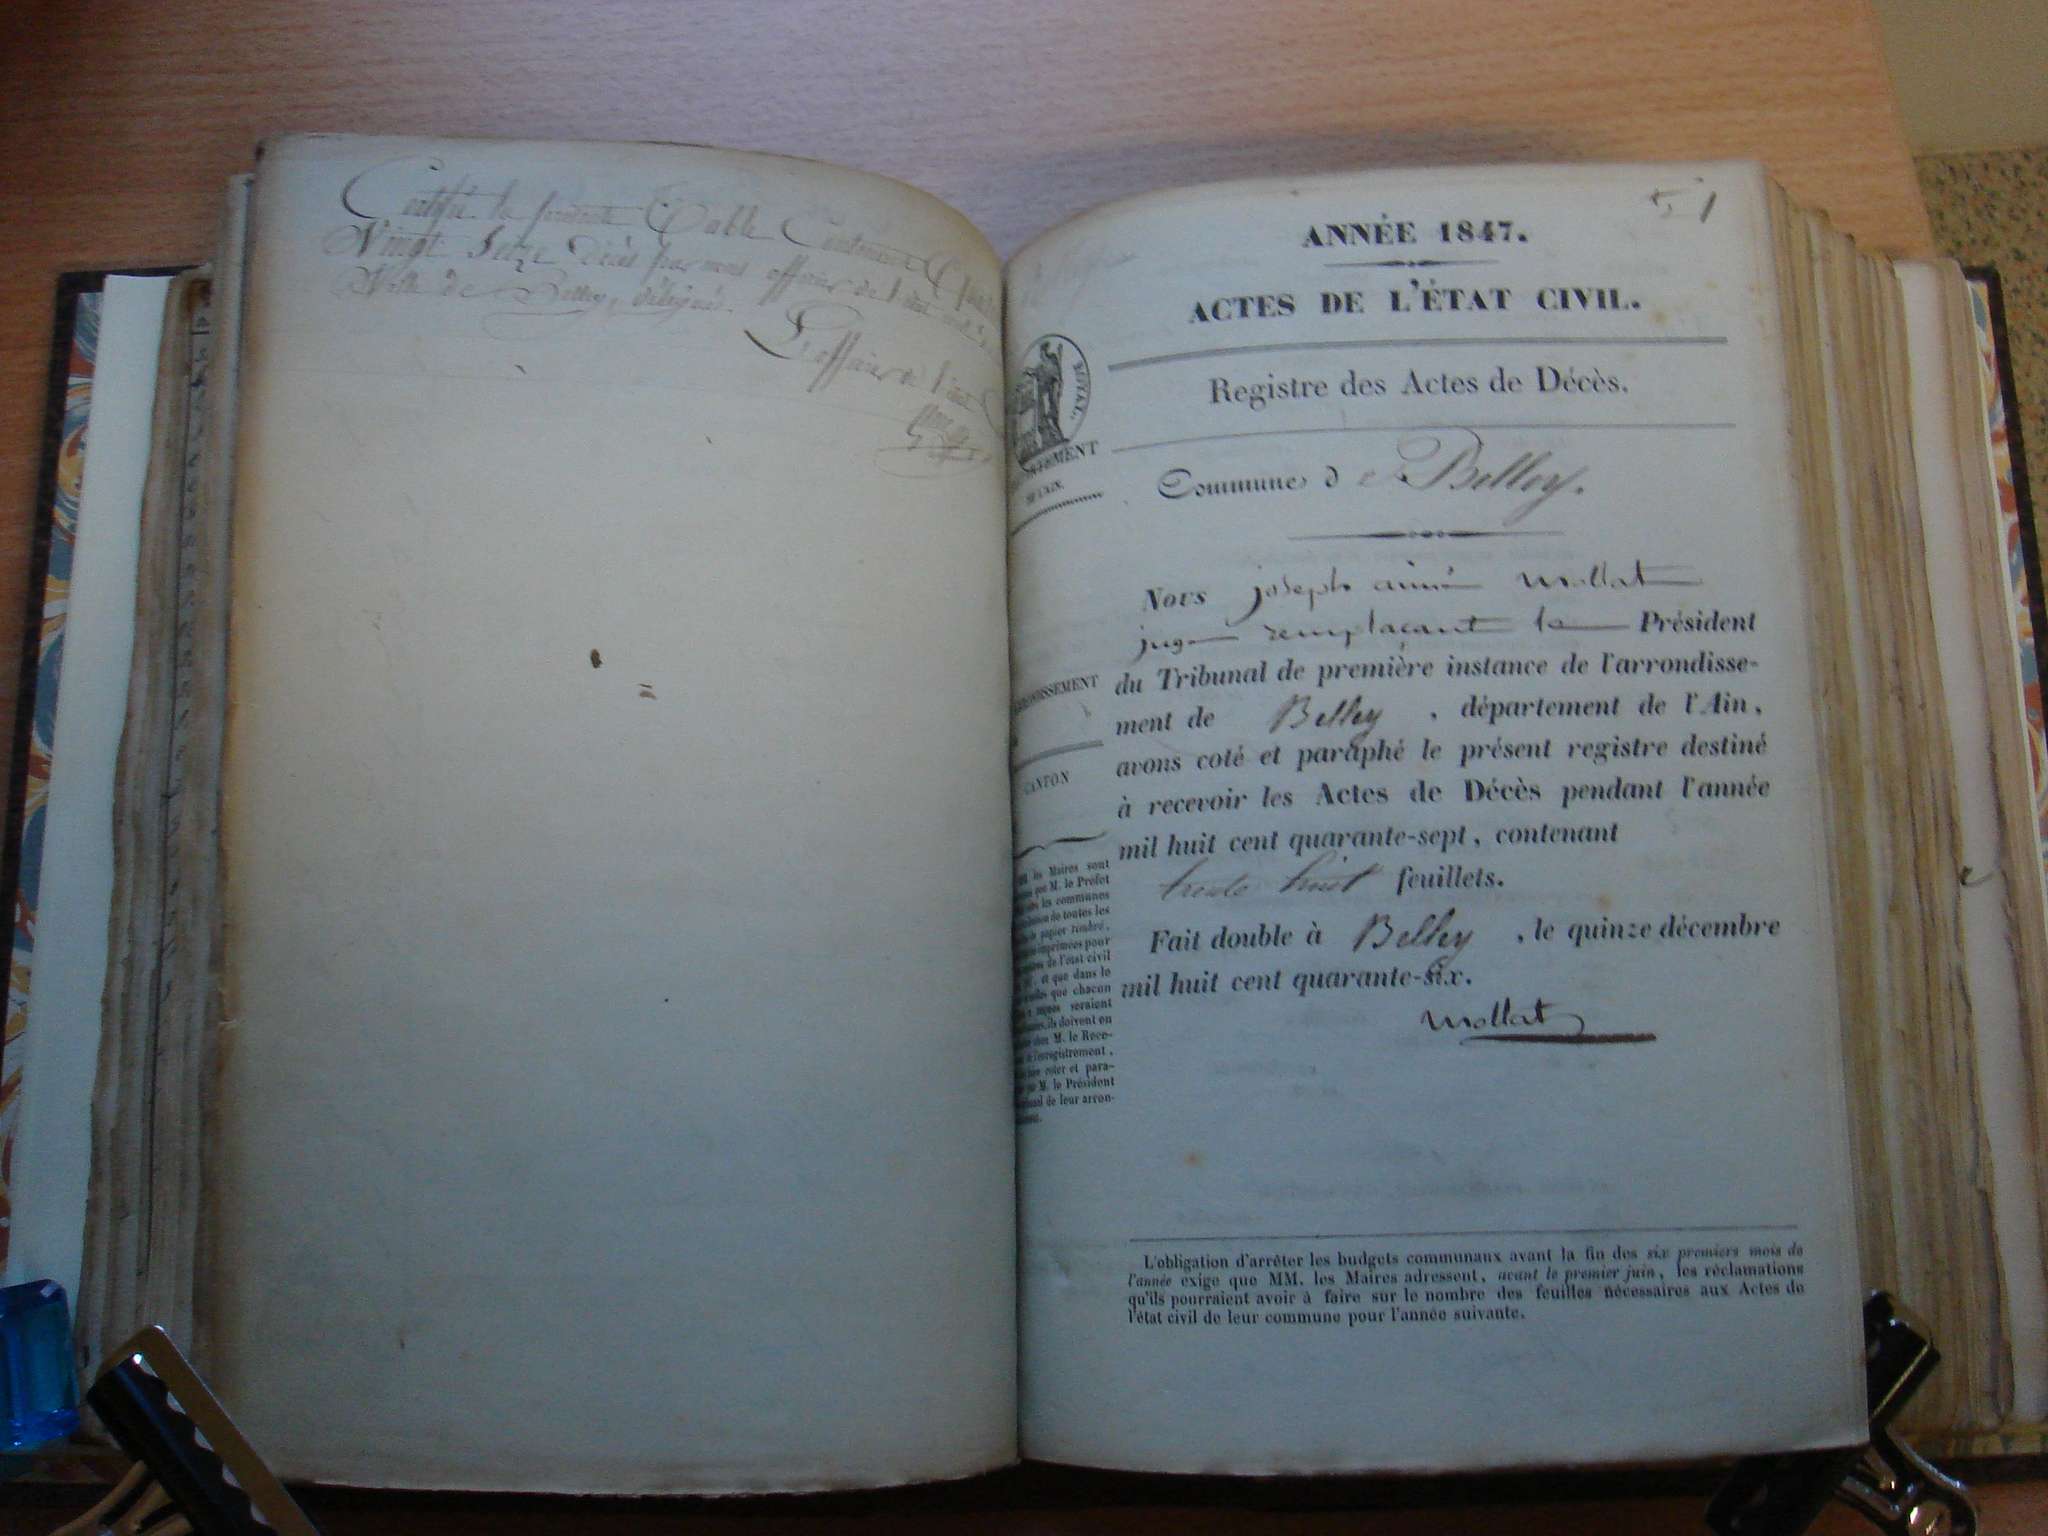 Certifié la présente Table Contenant
Vingt Seize décès par nous officier de l'état civil
Ville de Belley, délégué.
L'officier de l'état
51
ANNÉE 1847.
ACTES DE L'ÉTAT CIVIL.
Registre des Actes de Décès.
ROYAL.
DE L'AIN.
Commune de Belley.
Nous joseph aimé mollat
juge remplaçant le Président
du Tribunal de première instance de l'arrondisse-
ment de Belley, département de l'Ain,
avons coté et paraphé le présent registre destiné
à recevoir les Actes de Décès pendant l'année
mil huit cent quarante-sept, contenant
trente huit feuillets.
Fait double à Belley, le quinze décembre
mil huit cent quarante-six.
mollat
CANTON
les Maires sont
par M. le Préfet
les communes
de toutes les
papier timbré,
imprimées pour
de l'état civil
et que dans le
que chacun
seraient
ils doivent en
chez M. le Rece-
de l'enregistrement,
coter et para-
M. le Président
de leur arron-
L'obligation d'arrêter les budgets communaux avant la fin des six premiers mois de
l'année exige que MM. les Maires adressent, avant le premier juin, les réclamations
qu'ils pourraient avoir à faire sur le nombre des feuilles nécessaires aux Actes de
l'état civil de leur commune pour l'année suivante.